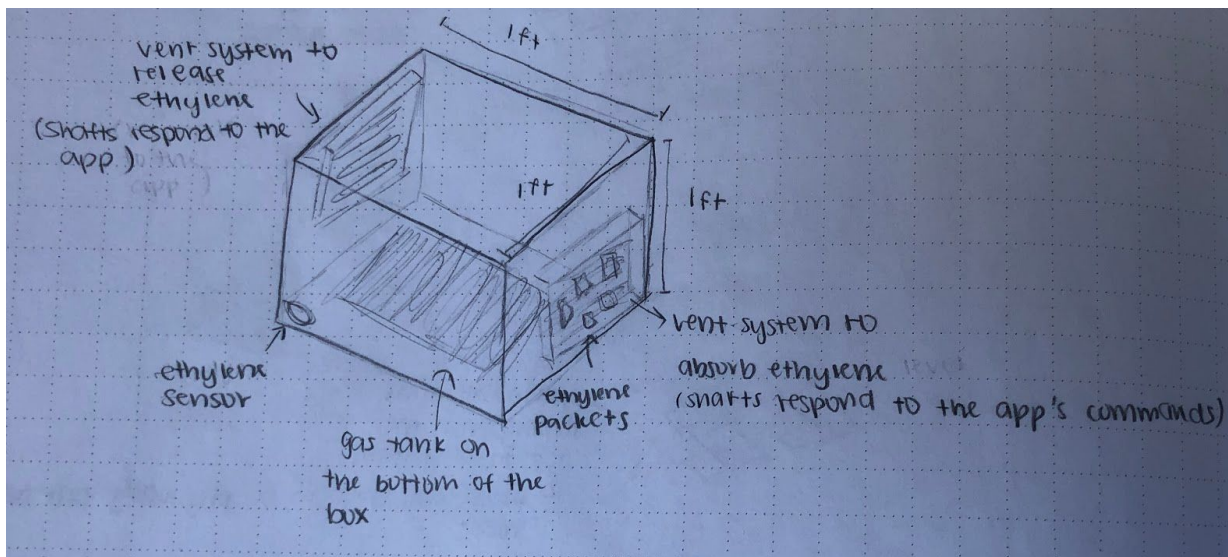 vent system to
release
ethylene
(shafts respond to the
app)
1ft
1ft
1ft
ethylene
sensor
gas tank on
the bottom of the
box
ethylene
packets
vent system to
absorb ethylene
(shafts respond to the app's commands)